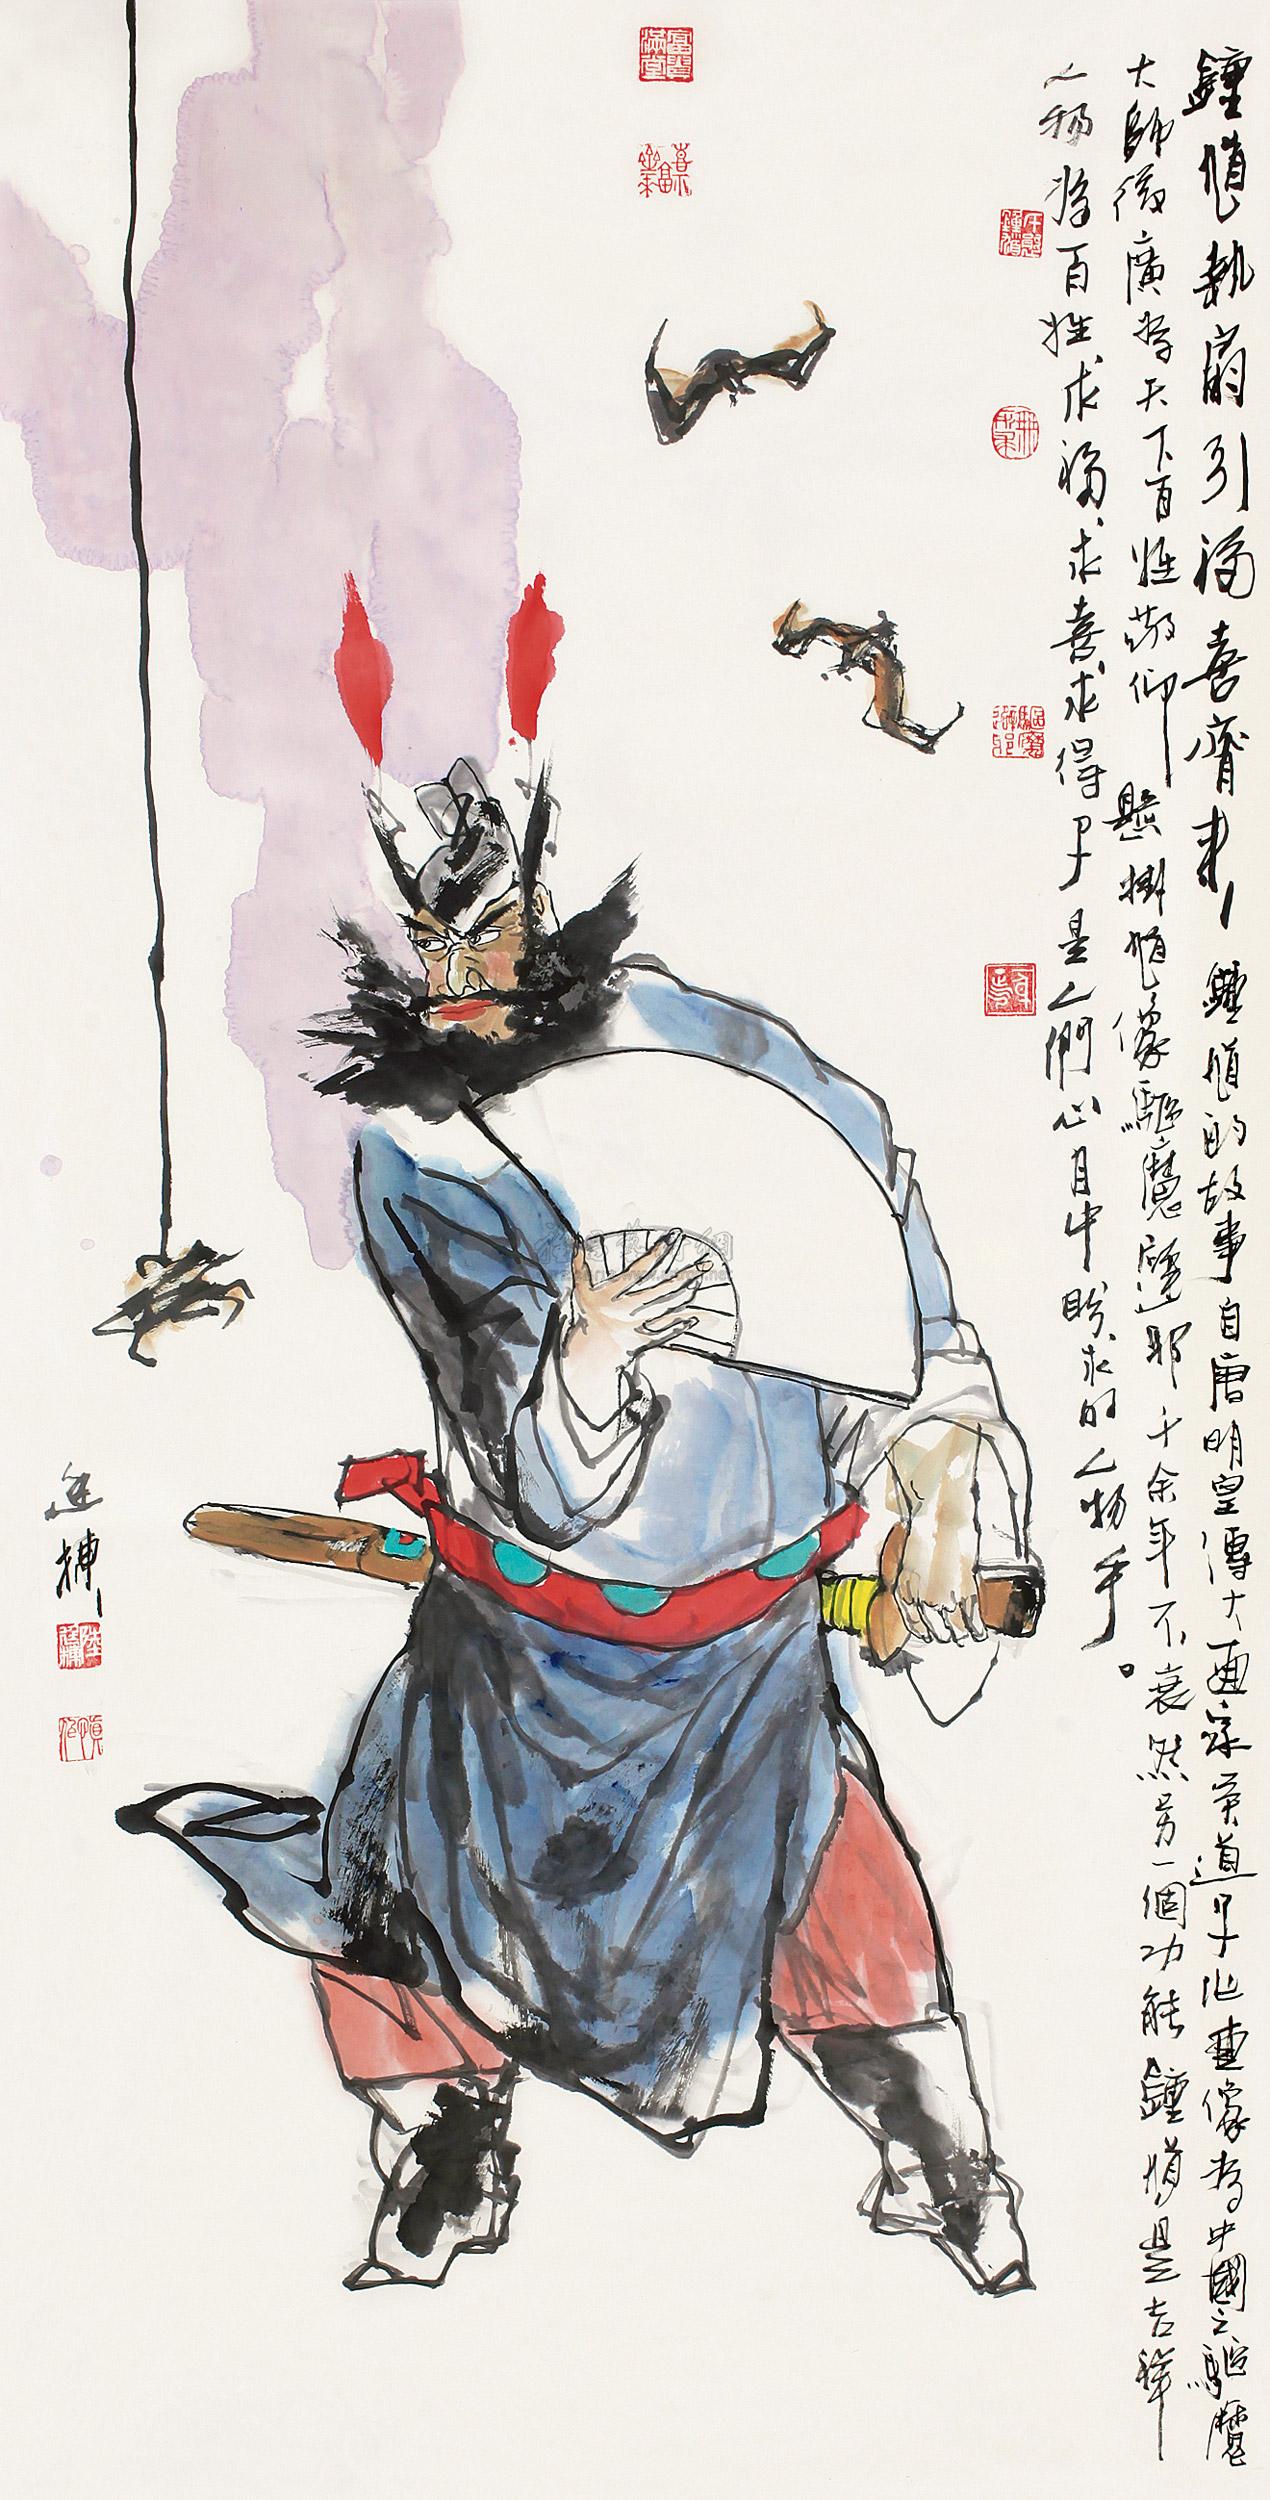 鍾馗執扇引福喜齊來，鍾馗的故事自唐明皇傳大画家吴道子作画像為中國之驅魔
大師後廣為天下百姓敬仰懸掛馗像驅魔避邪千余年不衰然另一個功能鍾馗是吉祥
人物為百姓求福求喜求得子是人們心目中盼求的人物手。
富貴滿堂
驅魔避邪